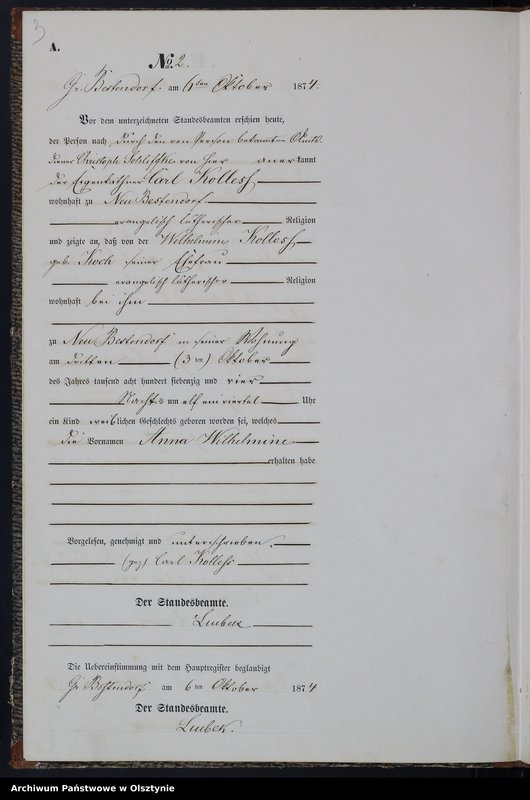 3
A.
No 2.
Gr. Bestendorf. am 6ten Oktober 1874.
Vor dem unterzeichneten Standesbeamten erschien heute,
der Person nach, durch den von Person bekannten
diener Christoph von hier anerkannt
der Eigenkäthner Carl Kolless
wohnhaft zu Neu Bestendorf.
evangelisch lutherischer Religion
und zeigte an, daß von der Wilhelmine Kolless
geb. Koch seiner Ehefrau
evangelisch lutherischer Religion
wohnhaft bei ihm
zu Neu Bestendorf in seiner Wohnung
am dritten (3 ten) Oktober
des Jahres tausend acht hundert siebenzig und vier
Nachts um elf ein viertel Uhr
ein Kind weiblichen Geschlechts geboren worden sei, welches
die Vornamen Anna Wilhelmine
erhalten habe
Vorgelesen, genehmigt und unterschrieben.
(gez) Carl Kolless
Der Standesbeamte.
Lubek
Die Uebereinstimmung mit dem Hauptregister beglaubigt
Gr. Bestendorf am 6 ten Oktober 1874
Der Standesbeamte.
Lubek.
Archiwum Państwowe w Olsztynie